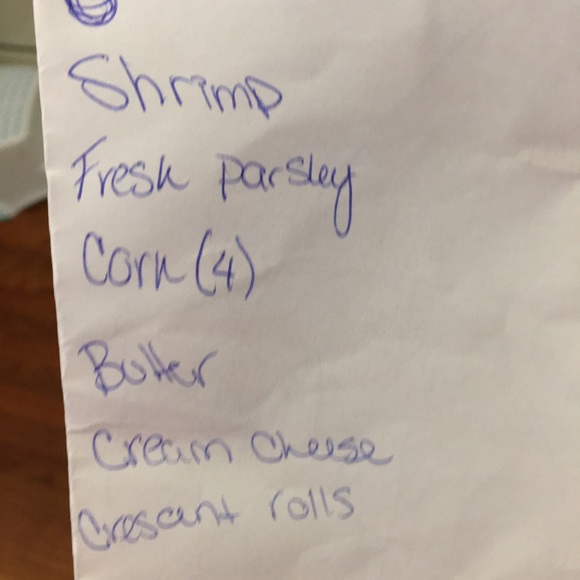 Shrimp
Fresh parsley
Corn (4)
Butter
Cream cheese
Cresant rolls